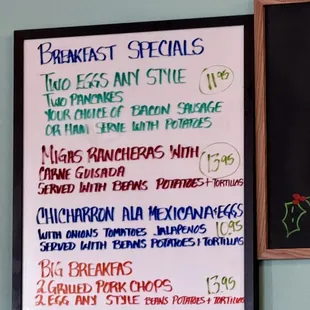 BREAKFAST SPECIALS
TWO EGGS ANY STYLE 11.95
TWO PANCAKES
YOUR CHOICE OF BACON SAUSAGE
OR HAM SERVE WITH POTATOES
MIGAS RANCHERAS WITH 13.95
CARNE GUISADA
SERVED WITH BEANS POTATOES + TORTILLAS
CHICHARRON ALA MEXICANA + EGGS
WITH ONIONS TOMATOES JALAPENOS 10.95
SERVED WITH BEANS POTATOES + TORTILLAS
BIG BREAKFAS
2 GRILLED PORK CHOPS 13.95
2 EGG ANY STYLE BEANS POTATOES + TORTILLAS